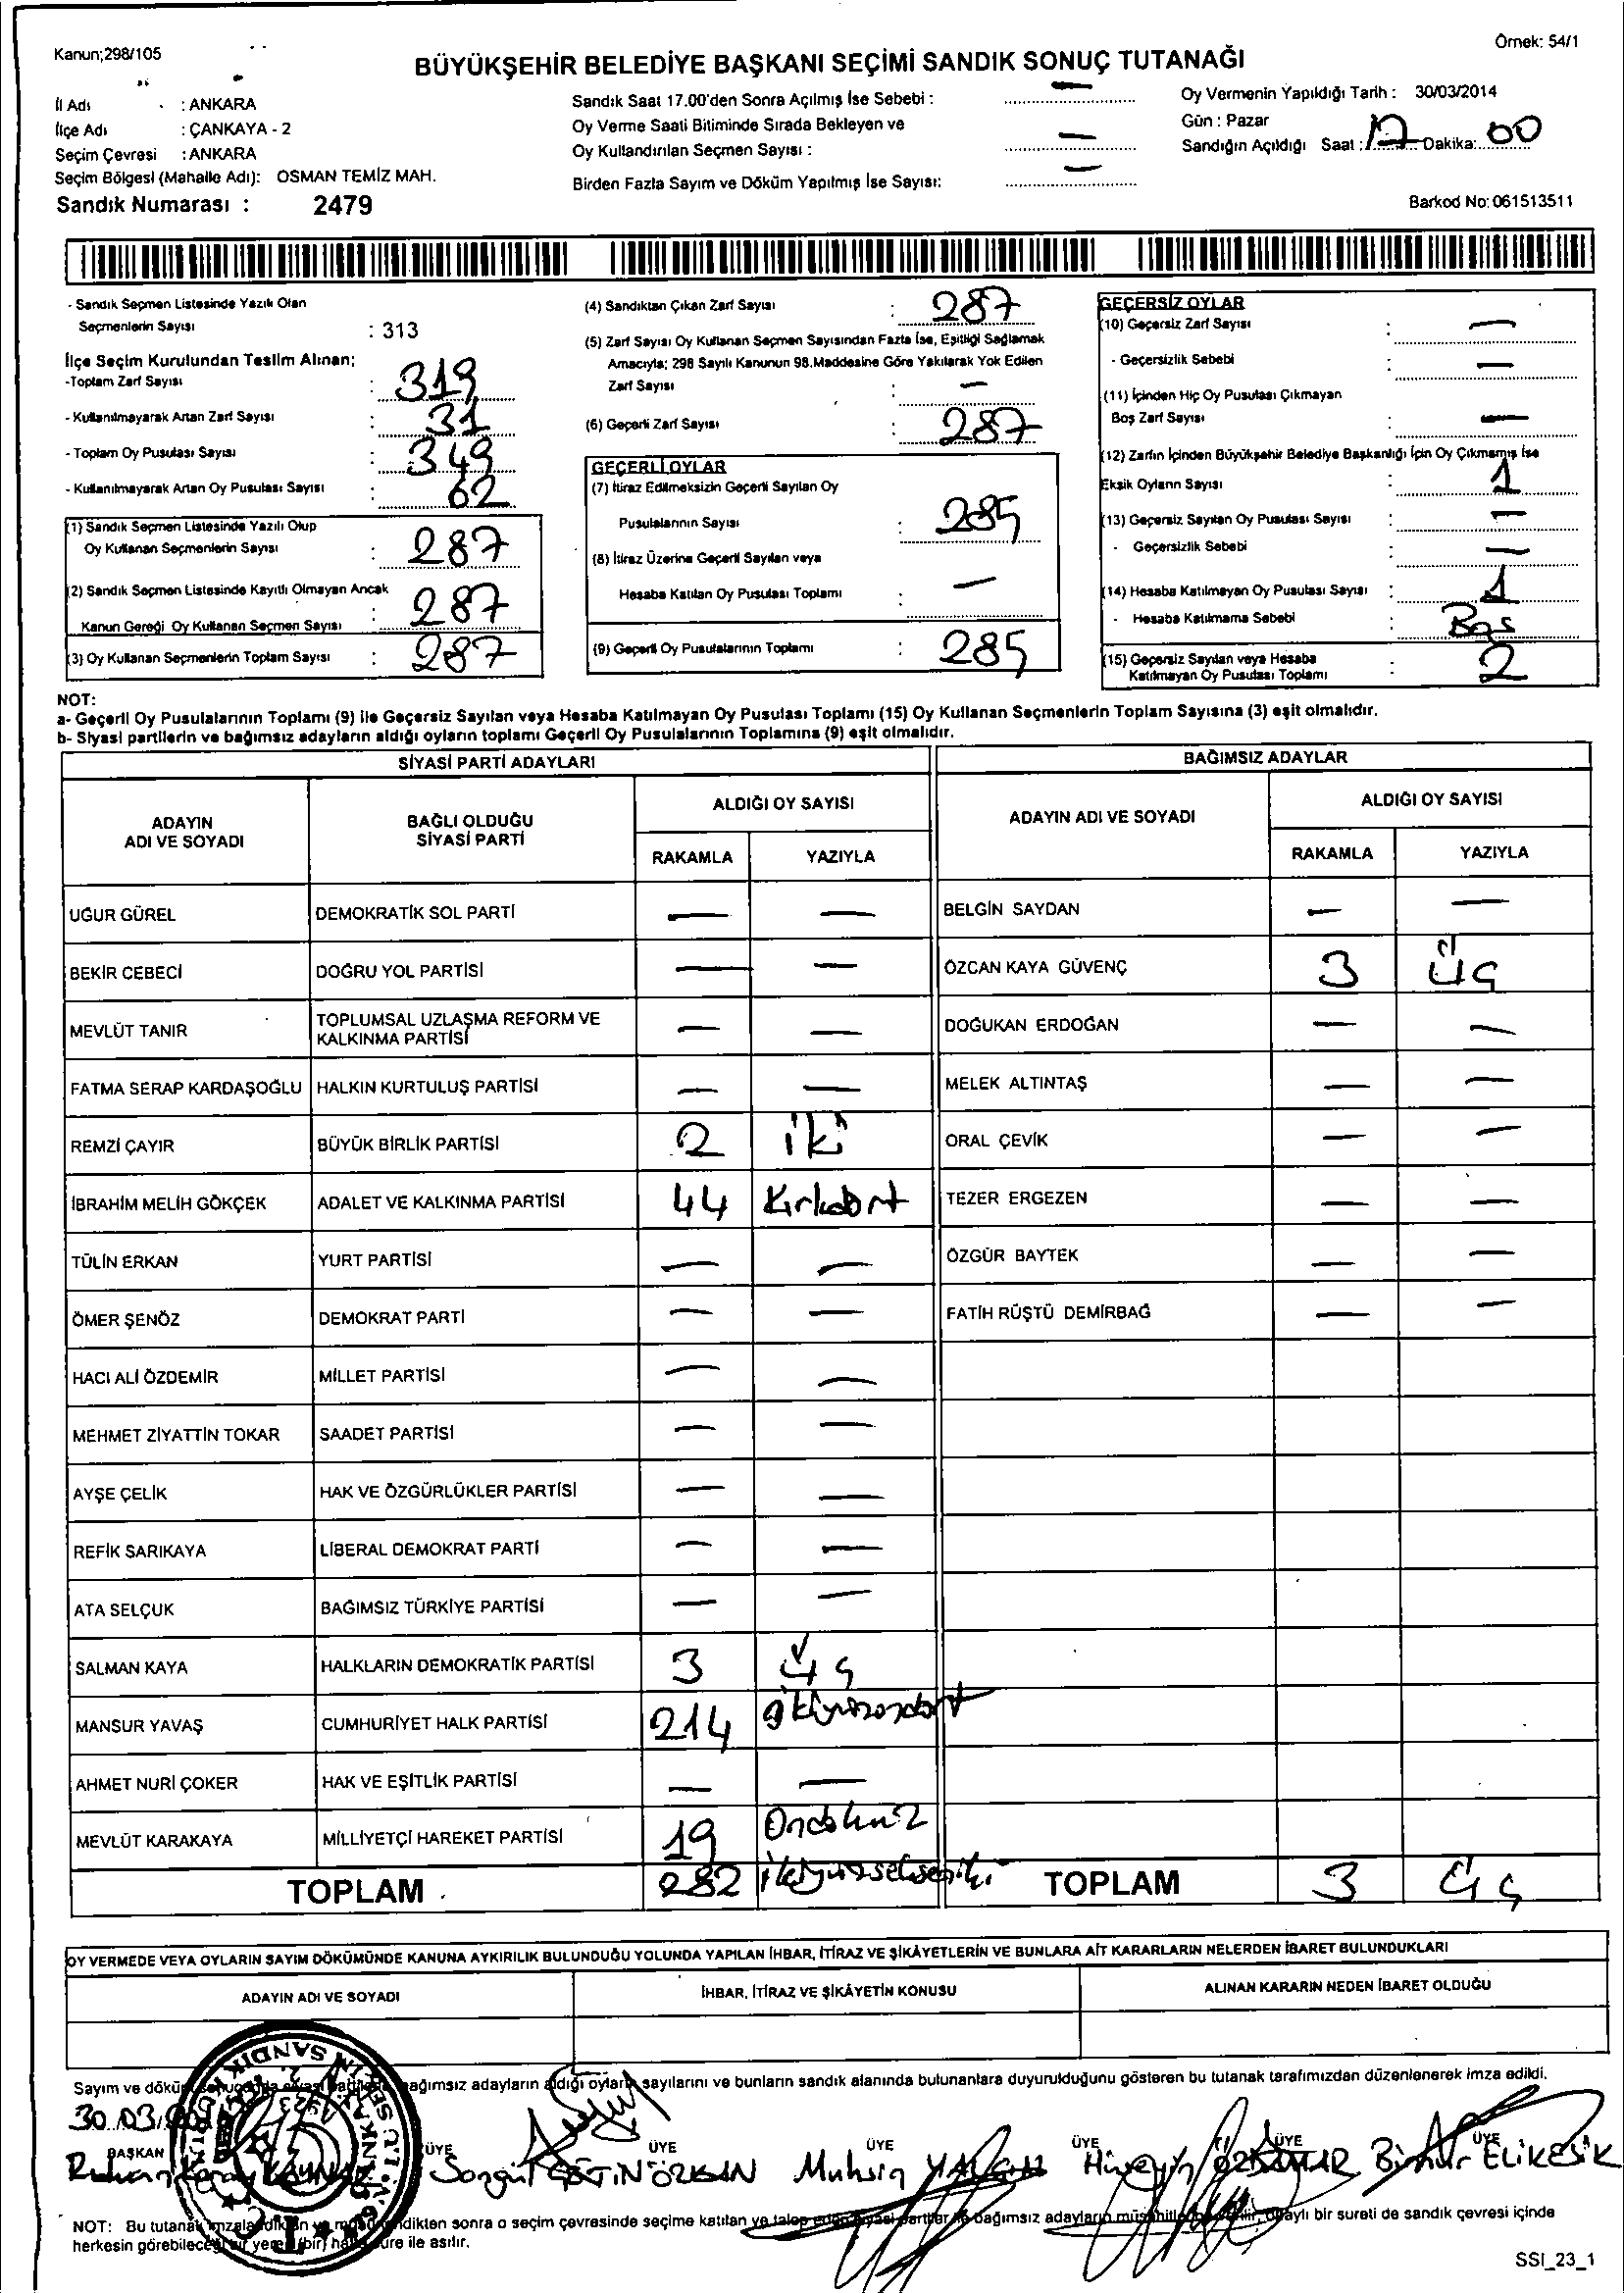 Kanun;298/105
Örnek: 54/1
BÜYÜKŞEHİR BELEDİYE BAŞKANI SEÇİMİ SANDIK SONUÇ TUTANAĞI
İl Adı : ANKARA
İlçe Adı : ÇANKAYA - 2
Seçim Çevresi : ANKARA
Seçim Bölgesi (Mahalle Adı): OSMAN TEMİZ MAH.
Sandık Numarası : 2479
Sandık Saat 17.00'den Sonra Açılmış İse Sebebi : —
Oy Verme Saati Bitiminde Sırada Bekleyen ve
Oy Kullandırılan Seçmen Sayısı : —
Birden Fazla Sayım ve Döküm Yapılmış İse Sayısı: —
Oy Vermenin Yapıldığı Tarih : 30/03/2014
Gün : Pazar
Sandığın Açıldığı Saat : 17 Dakika: 00
Barkod No: 061513511
- Sandık Seçmen Listesinde Yazılı Olan
Seçmenlerin Sayısı : 313
İlçe Seçim Kurulundan Teslim Alınan;
-Toplam Zarf Sayısı : 319
- Kullanılmayarak Artan Zarf Sayısı : 31
- Toplam Oy Pusulası Sayısı : 349
- Kullanılmayarak Artan Oy Pusulası Sayısı : 62
(1) Sandık Seçmen Listesinde Yazılı Olup
Oy Kullanan Seçmenlerin Sayısı : 287
(2) Sandık Seçmen Listesinde Kayıtlı Olmayan Ancak
Kanun Gereği Oy Kullanan Seçmen Sayısı : 287
(3) Oy Kullanan Seçmenlerin Toplam Sayısı : 287
(4) Sandıktan Çıkan Zarf Sayısı : 287
(5) Zarf Sayısı Oy Kullanan Seçmen Sayısından Fazla İse, Eşitliği Sağlamak
Amacıyla; 298 Sayılı Kanunun 98.Maddesine Göre Yakılarak Yok Edilen
Zarf Sayısı : —
(6) Geçerli Zarf Sayısı : 287
GEÇERLİ OYLAR
(7) İtiraz Edilmeksizin Geçerli Sayılan Oy
Pusulalarının Sayısı : 285
(8) İtiraz Üzerine Geçerli Sayılan veya
Hesaba Katılan Oy Pusulası Toplamı : —
(9) Geçerli Oy Pusulalarının Toplamı : 285
GEÇERSİZ OYLAR
(10) Geçersiz Zarf Sayısı : —
- Geçersizlik Sebebi : —
(11) İçinden Hiç Oy Pusulası Çıkmayan
Boş Zarf Sayısı : —
(12) Zarfın İçinden Büyükşehir Belediye Başkanlığı İçin Oy Çıkmamış İse
Eksik Oyların Sayısı : 1
(13) Geçersiz Sayılan Oy Pusulası Sayısı : —
- Geçersizlik Sebebi : —
(14) Hesaba Katılmayan Oy Pusulası Sayısı : 1
- Hesaba Katılmama Sebebi : Boş
(15) Geçersiz Sayılan veya Hesaba
Katılmayan Oy Pusulası Toplamı : 2
NOT:
a- Geçerli Oy Pusulalarının Toplamı (9) ile Geçersiz Sayılan veya Hesaba Katılmayan Oy Pusulası Toplamı (15) Oy Kullanan Seçmenlerin Toplam Sayısına (3) eşit olmalıdır.
b- Siyasi partilerin ve bağımsız adayların aldığı oyların toplamı Geçerli Oy Pusulalarının Toplamına (9) eşit olmalıdır.
SİYASİ PARTİ ADAYLARI BAĞIMSIZ ADAYLAR
ADAYIN ADI VE SOYADI BAĞLI OLDUĞU SİYASİ PARTİ ALDIĞI OY SAYISI ADAYIN ADI VE SOYADI ALDIĞI OY SAYISI
RAKAMLA YAZIYLA RAKAMLA YAZIYLA
UĞUR GÜREL DEMOKRATİK SOL PARTİ — — BELGİN SAYDAN — —
BEKİR CEBECİ DOĞRU YOL PARTİSİ — — ÖZCAN KAYA GÜVENÇ 3 Üç
MEVLÜT TANIR TOPLUMSAL UZLAŞMA REFORM VE KALKINMA PARTİSİ — — DOĞUKAN ERDOĞAN — —
FATMA SERAP KARDAŞOĞLU HALKIN KURTULUŞ PARTİSİ — — MELEK ALTINTAŞ — —
REMZİ ÇAYIR BÜYÜK BİRLİK PARTİSİ 2 iki ORAL ÇEVİK — —
İBRAHİM MELİH GÖKÇEK ADALET VE KALKINMA PARTİSİ 44 Kırkdört TEZER ERGEZEN — —
TÜLİN ERKAN YURT PARTİSİ — — ÖZGÜR BAYTEK — —
ÖMER ŞENÖZ DEMOKRAT PARTİ — — FATİH RÜŞTÜ DEMİRBAĞ — —
HACI ALİ ÖZDEMİR MİLLET PARTİSİ — —
MEHMET ZİYATTİN TOKAR SAADET PARTİSİ — —
AYŞE ÇELİK HAK VE ÖZGÜRLÜKLER PARTİSİ — —
REFİK SARIKAYA LİBERAL DEMOKRAT PARTİ — —
ATA SELÇUK BAĞIMSIZ TÜRKİYE PARTİSİ — —
SALMAN KAYA HALKLARIN DEMOKRATİK PARTİSİ 3 üç
MANSUR YAVAŞ CUMHURİYET HALK PARTİSİ 214 ikiyüzondört
AHMET NURİ ÇOKER HAK VE EŞİTLİK PARTİSİ — —
MEVLÜT KARAKAYA MİLLİYETÇİ HAREKET PARTİSİ 19 Ondokuz
TOPLAM 282 ikiyüzsekseniki TOPLAM 3 Üç
OY VERMEDE VEYA OYLARIN SAYIM DÖKÜMÜNDE KANUNA AYKIRILIK BULUNDUĞU YOLUNDA YAPILAN İHBAR, İTİRAZ VE ŞİKÂYETLERİN VE BUNLARA AİT KARARLARIN NELERDEN İBARET BULUNDUKLARI
ADAYIN ADI VE SOYADI İHBAR, İTİRAZ VE ŞİKÂYETİN KONUSU ALINAN KARARIN NEDEN İBARET OLDUĞU
Sayım ve döküm bağımsız adayların aldığı oyların sayılarını ve bunların sandık alanında bulunanlara duyurulduğunu gösteren bu tutanak tarafımızdan düzenlenerek imza edildi.
30.03.
BAŞKAN ÜYE ÜYE ÜYE ÜYE ÜYE ÜYE
Songül ÇETİN ÖZKAN Muhsin YALÇIN Hüseyin Binnur ELİKESİK
NOT: Bu tutanak sonra o seçim çevresinde seçime katılan ve talep eden siyasi partiler ile bağımsız adayların müşahitlerine onaylı bir sureti de sandık çevresi içinde
herkesin görebileceği bir yere (bir) hafta süre ile asılır.
SSI_23_1